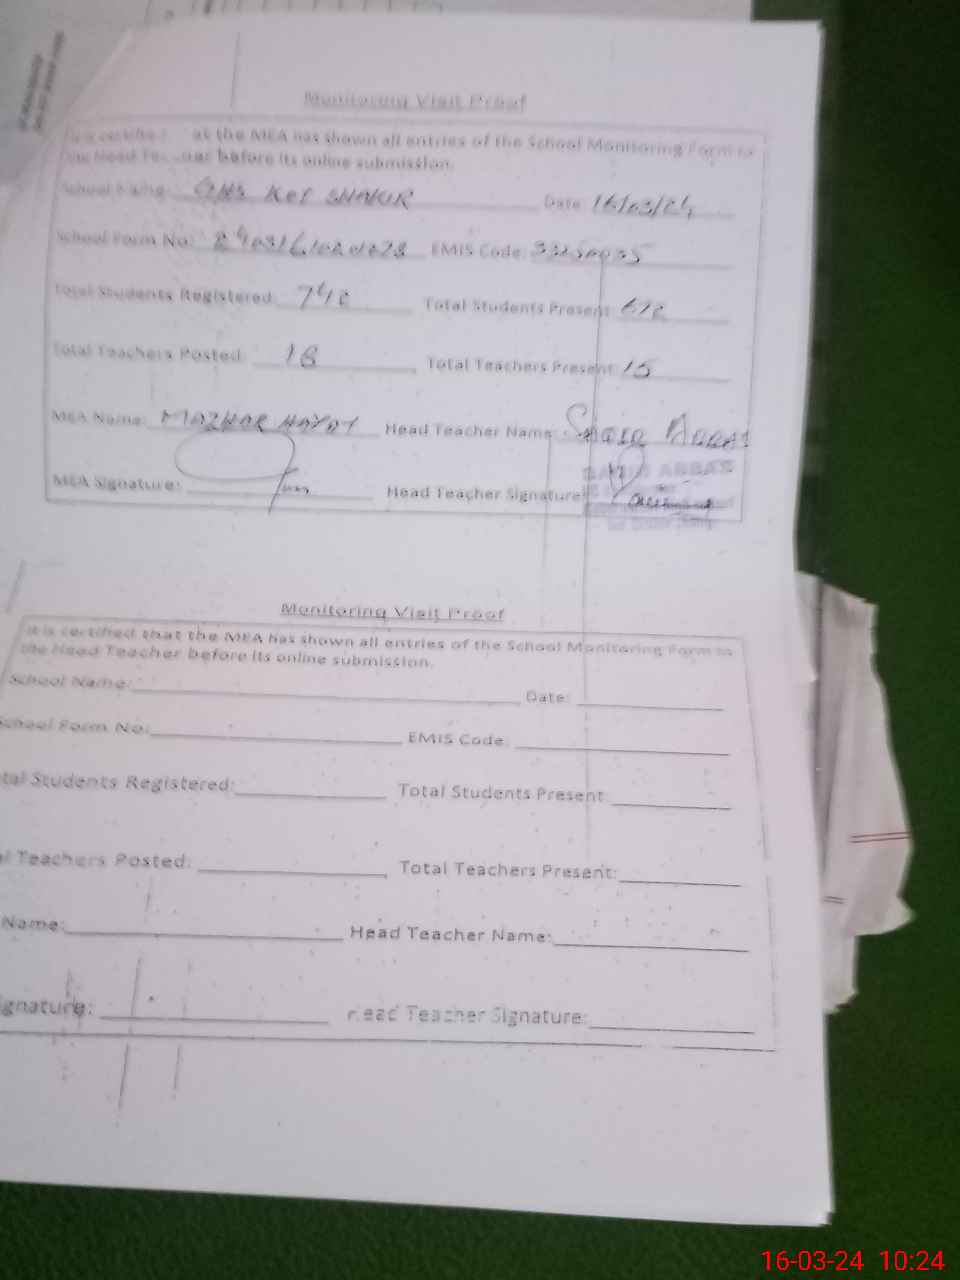 Monitoring Visit Proof
at the MEA has shown all entries of the School Monitoring Form to
the Head Teacher before its online submission.
School Name: GHS Kot SHAKIR Date 16/03/24
School Form No: EMIS Code:
Total Students Registered: 742 Total Students Present: 672
Total Teachers Posted: 18 Total Teachers Present: 15
MEA Name: MAZHAR HAYAT Head Teacher Name:
ABBAS
MEA Signature: Head Teacher Signature:
Monitoring Visit Proof
It is certified that the MEA has shown all entries of the School Monitoring Form to
the Head Teacher before its online submission.
School Name: Date:
School Form No: EMIS Code:
tal Students Registered: Total Students Present:
l Teachers Posted: Total Teachers Present:
Name: Head Teacher Name:
ignature: ead Teacher Signature:
16-03-24 10:24